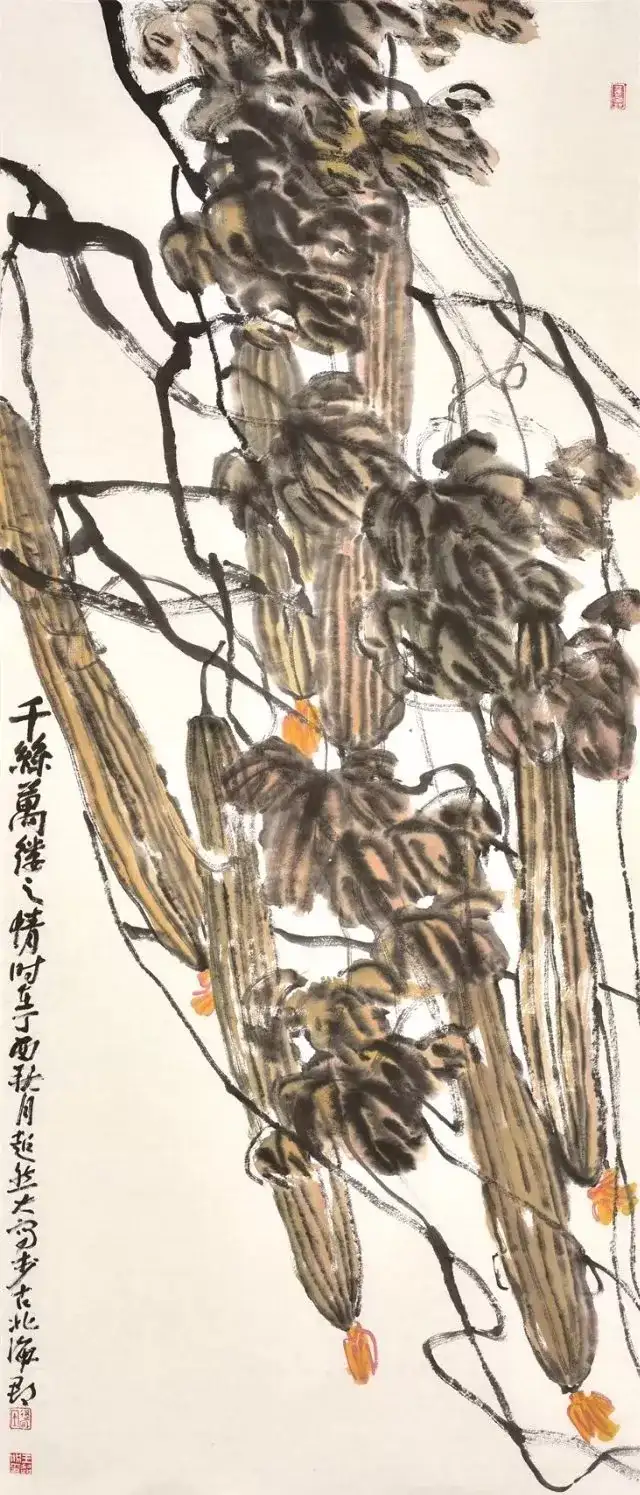 千絲萬縷之情时在丁酉秋月超然大写于古北海郡